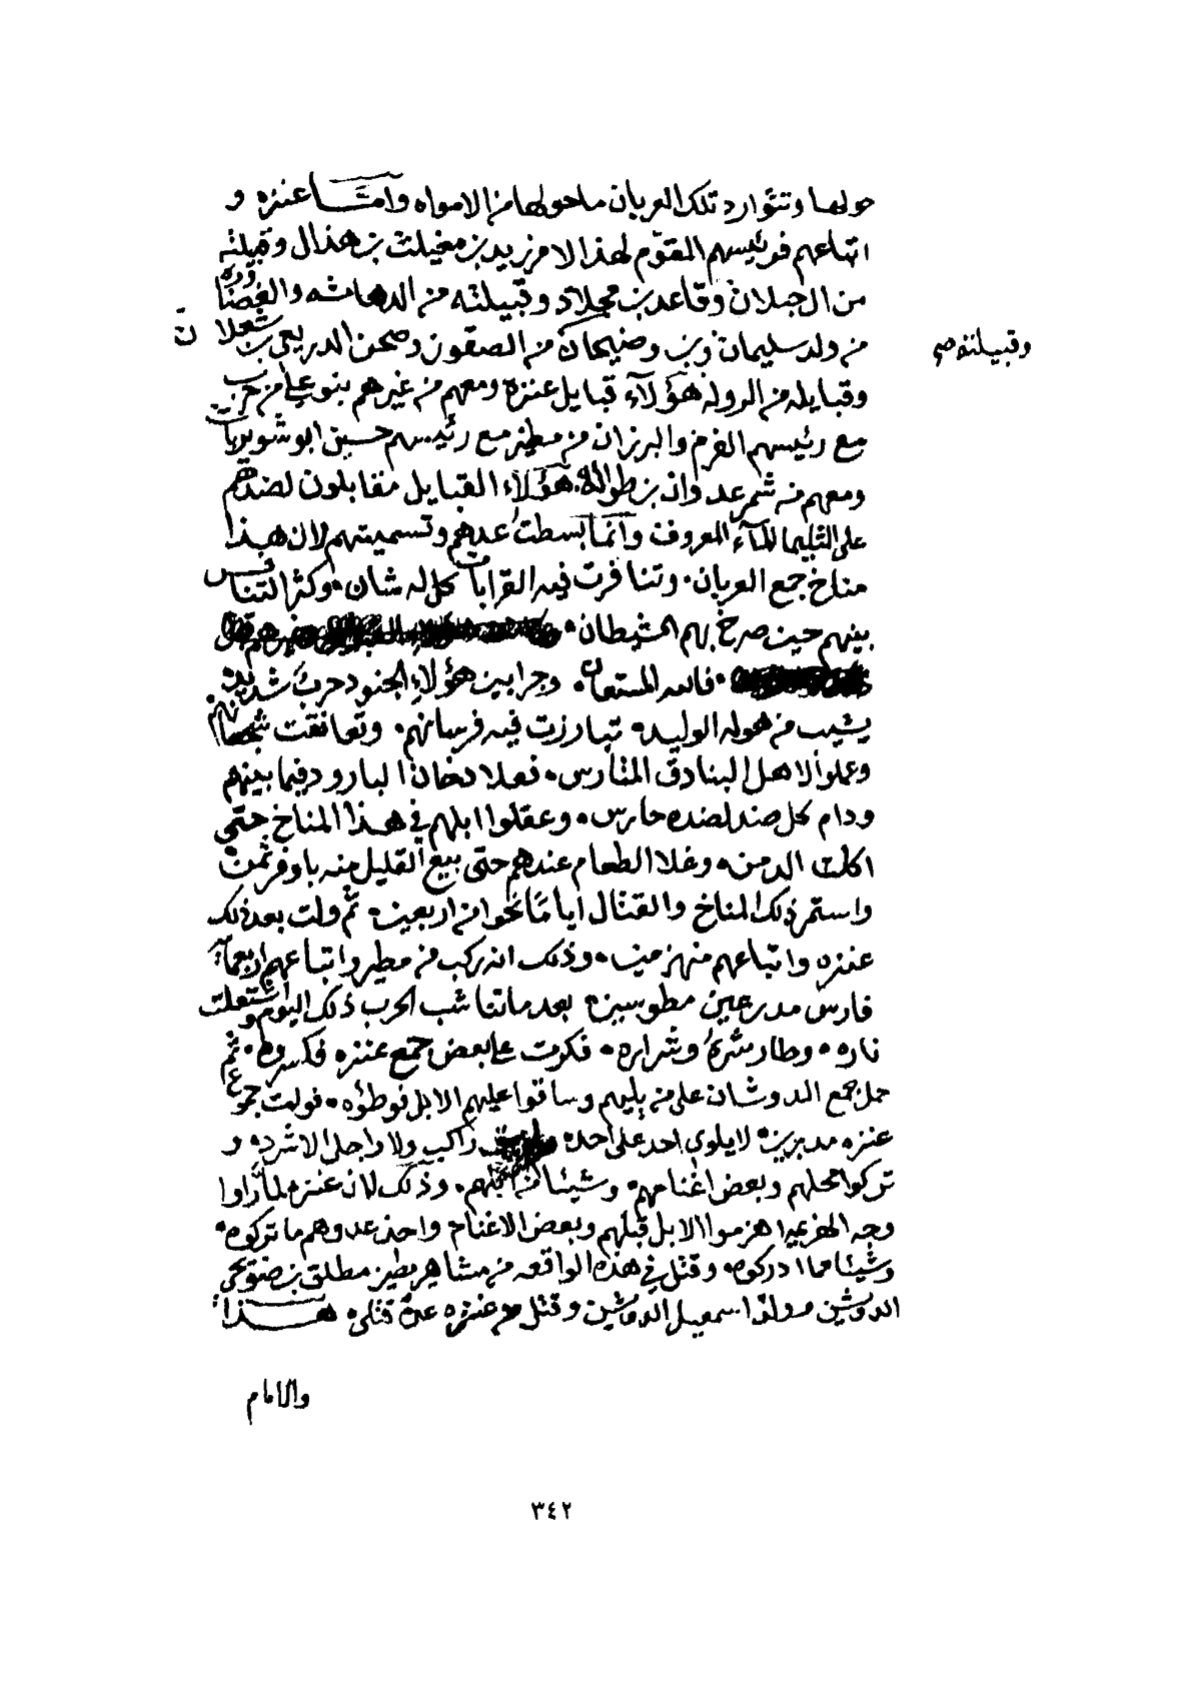 حولها وتتوارد تلك العربان ما حولها من الامواه وامّا عنزه و
اتباعهم فرئيسهم المقوّم لهذا الامر زيد بن مغيلث بن هذال وقبيلته
من الجبلان وقاعد بن مجلاد وقبيلته من الدهامشه والغضاوره
من ولد سليمان وبن وضيحان من الصقور وصحن الدريعي بن شعلان
وقبيلته صح
وقبايله من الروله هؤلآء قبايل عنزه ومعهم من غيرهم بنو علي من حرب
مع رئيسهم الفرم والبرزان من مطير مع رئيسهم حسين ابو شويربات
ومعهم من شمر عدوان بن طواله. هؤلاء القبايل مقابلون لضدهم
على الثليما للمآء المعروف وانما بسطت عدهم وتسميتهم لان هذا
مناخ جمع العربان. وتنافرت فيه القرابات كل له شان. وكثر التنافس
بينهم حين صرخ بهم الشيطان.
فالله المستعان. وجرا بين هؤلاء الجنود حرب شديد.
يشيب من هوله الوليد. تبارزت فيه فرسانهم. وتعانقت شجعانهم
وعملوا لاهل البنادق المتارس. فعلا دخان البارود فيما بينهم
ودام كل ضد لضده حارس. وعقلوا ابلهم في هذا المناخ حتى
اكلت الدمن. وغلا الطعام عندهم حتى بيع القليل منه باوفر ثمن
واستمر ذلك المناخ والقتال ايامًا نحوا من اربعين. ثم ولت بعد ذلك
عنزه واتباعهم منهزمين. وذلك انه ركب من مطير واتباعهم اربعمآئة
فارس مدرعين مطوسين. بعد ما تناشب الحرب ذلك اليوم واشتعلت
ناره. وطار شرهُ وشراره. فكرت على بعض جمع عنزه فكسروه. ثم
حمل جمع الدوشان على من يليهم وساقوا عليهم الابل فوطؤه. فولت جموع
عنزه مدبرين. لا يلوي احد على احد. راكب ولا راجل الا شرد. و
تركوا محلهم وبعض اغنامهم. وشيئا من ابلهم. وذلك لان عنزه لما راوا
وجه الهزيمه اهزموا الابل قبلهم وبعض الاغنام واخذ عدوهم ما تركوه.
وشيئا مما ادركوه. وقتل في هذه الواقعه من مشاهير مطير مطلق بن
الدويش وولد اسمعيل الدويش وقتل من عنزه عدة قتلى. هذا
والامام
٣٤٢